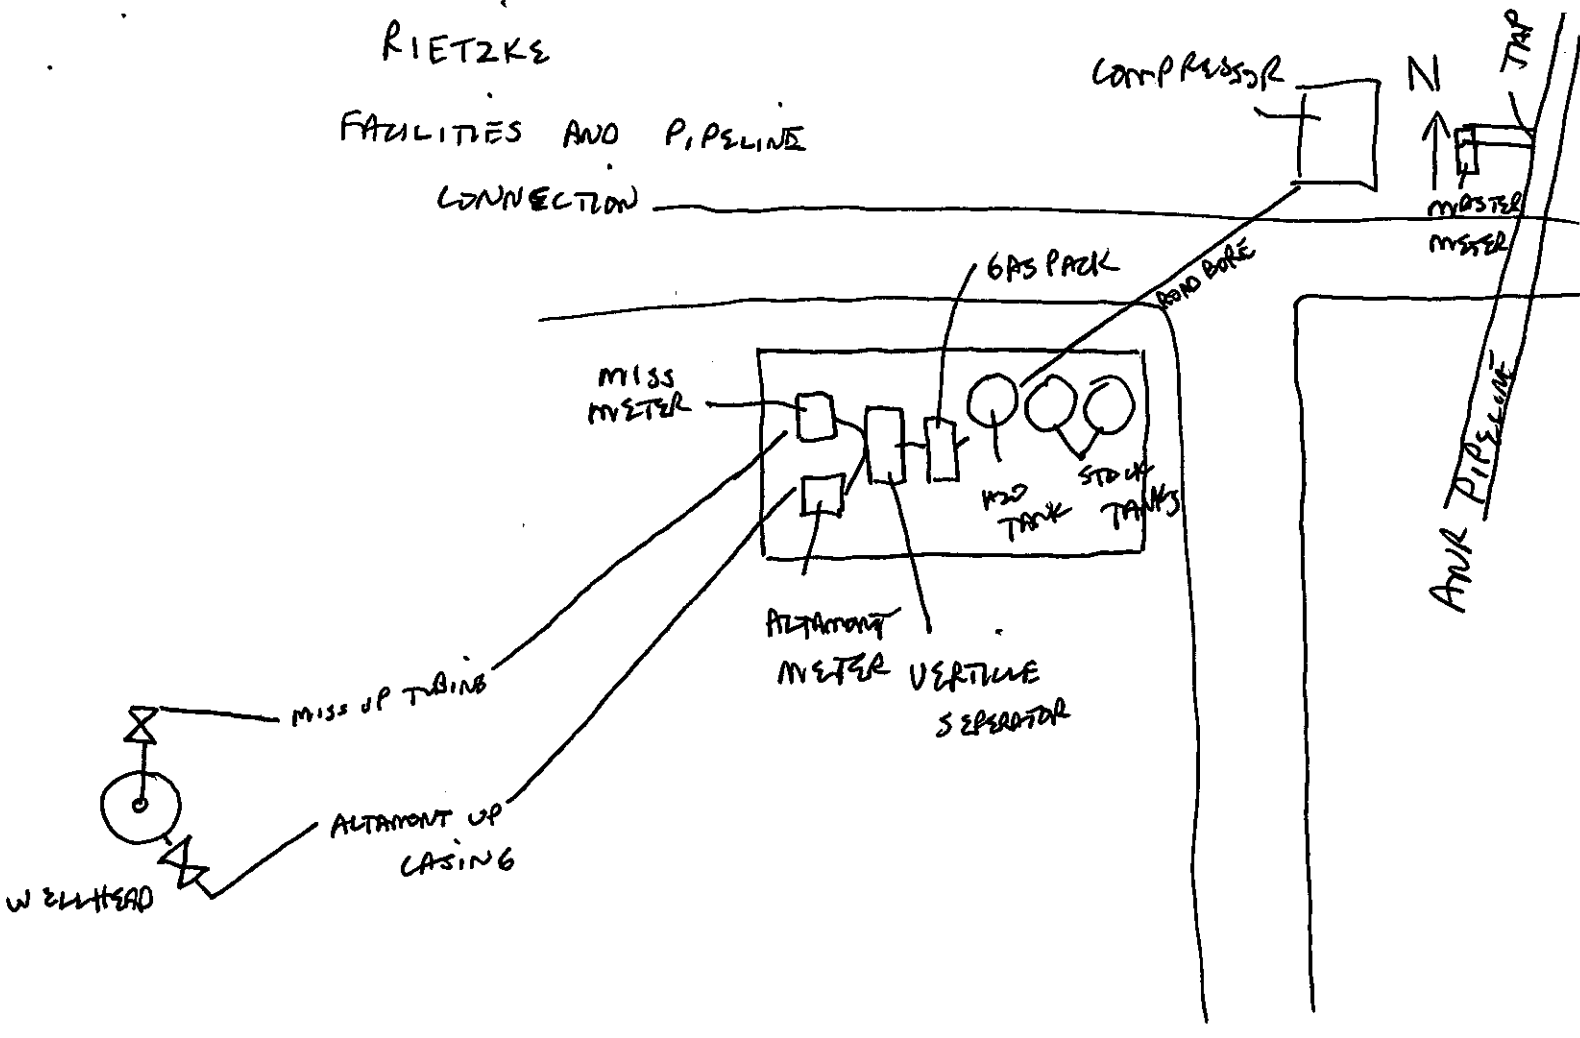 RIETZKE
FACILITIES AND PIPELINE
CONNECTION
COMPRESSOR
N
TAP
MASTER
METER
GAS PACK
ROAD BORE
MISS
METER
H2O
TANK
STOCK
TANKS
ANR PIPELINE
ALTAMONT
METER
VERTICLE
SEPERATOR
MISS UP TUBING
ALTAMONT UP
CASING
WELLHEAD